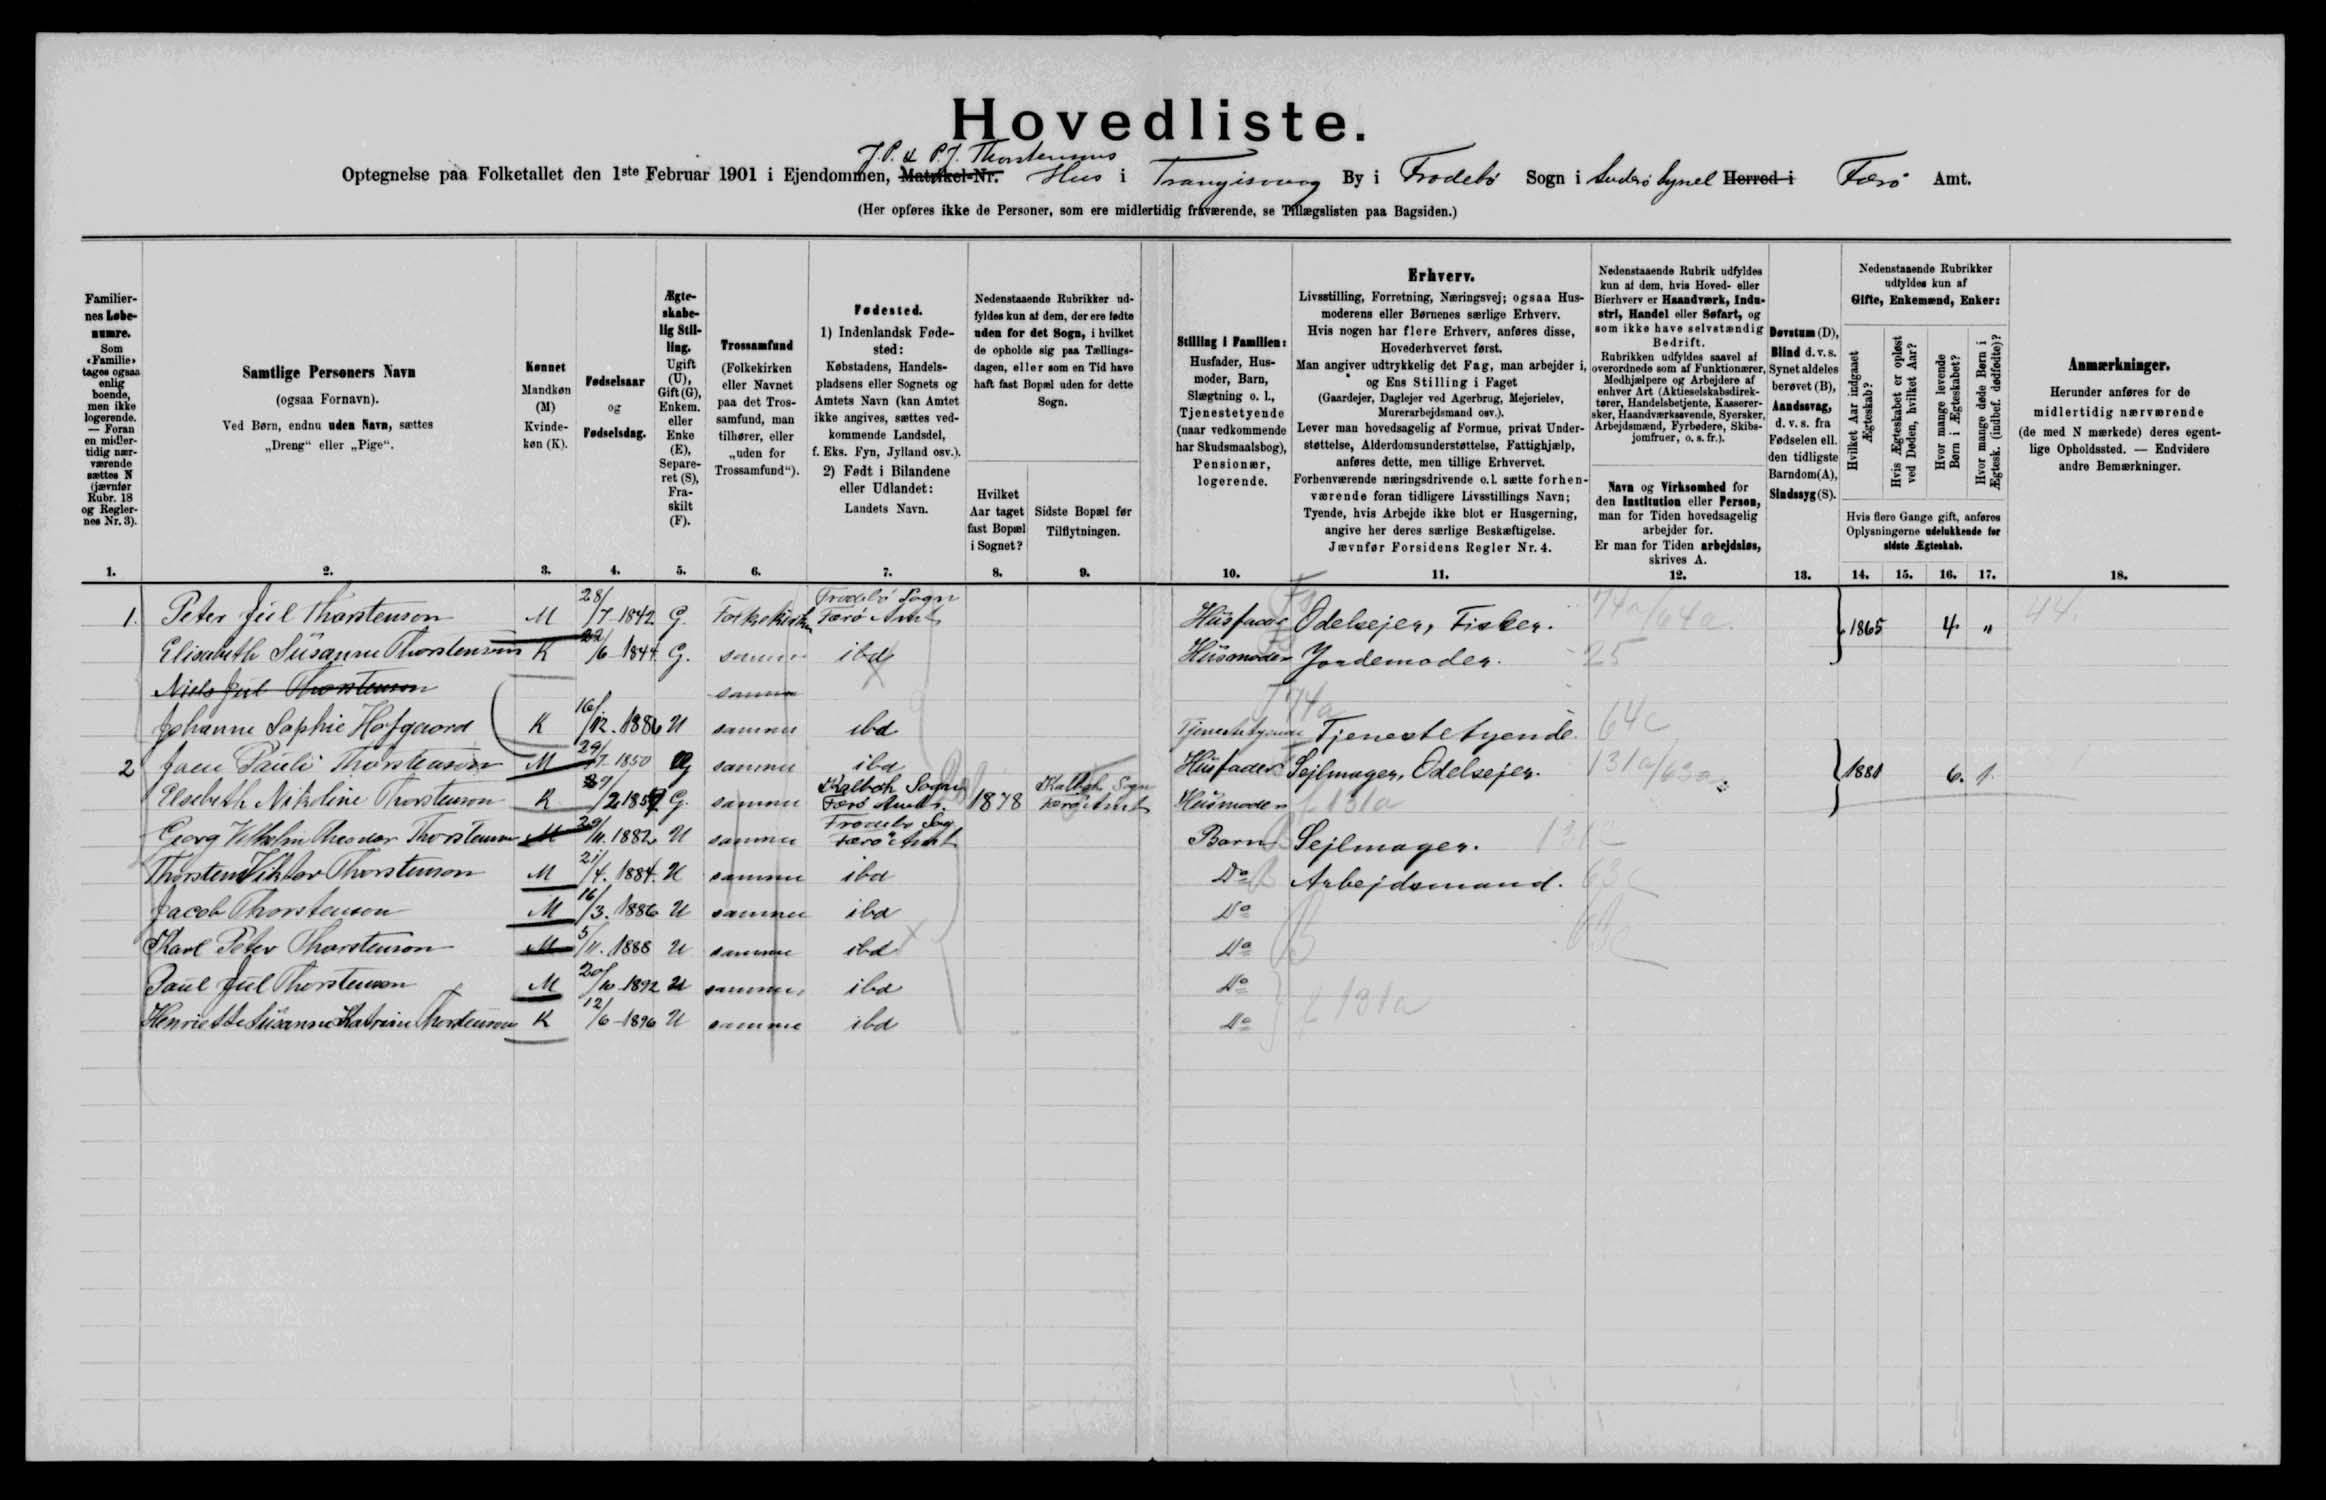 Hovedliste.
J. P. & P. J. Thorstensons
Optegnelse paa Folketallet den 1ste Februar 1901 i Ejendommen, Matrikel-Nr. Hus i Trangisvaag By i Frodebø Sogn i Suderø Syssel Herred i Færø Amt.
(Her opføres ikke de Personer, som ere midlertidig fraværende, se Tillægslisten paa Bagsiden.)
Familiernes Løbenumre.
Som «Familie» tages ogsaa enlig boende, men ikke logerende. — Foran en midlertidig nærværende sættes N (jævnfør Rubr. 18 og Reglernes Nr. 3).
Samtlige Personers Navn
(ogsaa Fornavn).
Ved Børn, endnu uden Navn, sættes
„Dreng“ eller „Pige“.
Kønnet
Mandkøn (M)
Kvindekøn (K).
Fødselsaar
og
Fødselsdag.
Ægteskabelig Stilling.
Ugift (U), Gift (G), Enkem. eller Enke (E), Separeret (S), Fraskilt (F).
Trossamfund
(Folkekirken eller Navnet paa det Trossamfund, man tilhører, eller „uden for Trossamfund“).
Fødested.
1) Indenlandsk Fødested:
Købstadens, Handelspladsens eller Sognets og Amtets Navn (kan Amtet ikke angives, sættes vedkommende Landsdel, f. Eks. Fyn, Jylland osv.).
2) Født i Bilandene eller Udlandet:
Landets Navn.
Nedenstaaende Rubrikker udfyldes kun af dem, der ere fødte uden for det Sogn, i hvilket de opholde sig paa Tællingsdagen, eller som en Tid have haft fast Bopæl uden for dette Sogn.
Hvilket Aar taget fast Bopæl i Sognet?
Sidste Bopæl før Tilflytningen.
Stilling i Familien:
Husfader, Husmoder, Barn, Slægtning o. l., Tjenestetyende (naar vedkommende har Skudsmaalsbog), Pensionær, logerende.
Erhverv.
Livsstilling, Forretning, Næringsvej; ogsaa Husmoderens eller Børnenes særlige Erhverv.
Hvis nogen har flere Erhverv, anføres disse, Hovederhvervet først.
Man angiver udtrykkelig det Fag, man arbejder i, og Ens Stilling i Faget
(Gaardejer, Daglejer ved Agerbrug, Mejerielev, Murerarbejdsmand osv.).
Lever man hovedsagelig af Formue, privat Understøttelse, Alderdomsunderstøttelse, Fattighjælp, anføres dette, men tillige Erhvervet.
Forhenværende næringsdrivende o. l. sætte forhenværende foran tidligere Livsstillings Navn;
Tyende, hvis Arbejde ikke blot er Husgerning, angive her deres særlige Beskæftigelse.
Jævnfør Forsidens Regler Nr. 4.
Nedenstaaende Rubrik udfyldes kun af dem, hvis Hoved- eller Bierhverv er Haandværk, Industri, Handel eller Søfart, og som ikke have selvstændig Bedrift.
Rubrikken udfyldes saavel af overordnede som af Funktionærer, Medhjælpere og Arbejdere af enhver Art (Aktieselskabsdirektører, Handelsbetjente, Kasserersker, Haandværkssvende, Syersker, Arbejdsmænd, Fyrbødere, Skibsjomfruer, o. s. fr.).
Navn og Virksomhed for den Institution eller Person, man for Tiden hovedsagelig arbejder for.
Er man for Tiden arbejdsløs, skrives A.
Døvstum (D), Blind d. v. s. Synet aldeles berøvet (B), Aandssvag, d. v. s. fra Fødselen ell. den tidligste Barndom (A), Sindssyg (S).
Nedenstaaende Rubrikker udfyldes kun af
Gifte, Enkemænd, Enker:
Hvilket Aar indgaaet Ægteskab?
Hvis Ægteskabet er opløst ved Døden, hvilket Aar?
Hvor mange levende Børn i Ægteskabet?
Hvor mange døde Børn i Ægtesk. (indbef. dødfødte)?
Hvis flere Gange gift, anføres Oplysningerne udelukkende for sidste Ægteskab.
Anmærkninger.
Herunder anføres for de midlertidig nærværende (de med N mærkede) deres egentlige Opholdssted. — Endvidere andre Bemærkninger.
1. 2. 3. 4. 5. 6. 7. 8. 9. 10. 11. 12. 13. 14. 15. 16. 17. 18.
1. Peter Juul Thorstenson M 28/7 1842 G. Folkekirken Frodebø Sogn Færø Amt Husfader Odelsejer, Fisker. 74a/64a. 1865 4 „ 44.
Elisabeth Susanne Thorstenson K 22/6 1844 G. samme ibd Husmoder Jordemoder. 25
Niels Juul Thorstenson samme
Johanne Sophie Hofgaard K 16/12. 1886 U samme ibd Tjenestetyende Tjenestetyende. 64c
2 Joen Pauli Thorstenson M 29/7 1850 G samme ibd Husfader Sejlmager, Odelsejer. 131a/63a 1881 6. 1.
Elsebeth Nikoline Thorstenson K /2 185 G. samme Kalbak Sogn Færø Amt. 1878 Kalbak Sogn Færø Amt Husmoder f 131a
Georg Vilhelm Theodor Thorstenson M 29/11. 1882 U samme Frodebø Sogn Færø Amt Barn Sejlmager. 131c
Thorsten Viktor Thorstenson M 21/4. 1884. U samme ibd Do Arbejdsmand. 63c
Jacob Thorstenson M 16/3. 1886 U samme ibd Do
Karl Peter Thorstenson M 5/11. 1888 U samme ibd Do
Paul Juul Thorstenson M 20/10 1892 U samme ibd Do
Henriette Susanne Katrine Thorstenson K 12/6 1896 U samme ibd Do f 131a